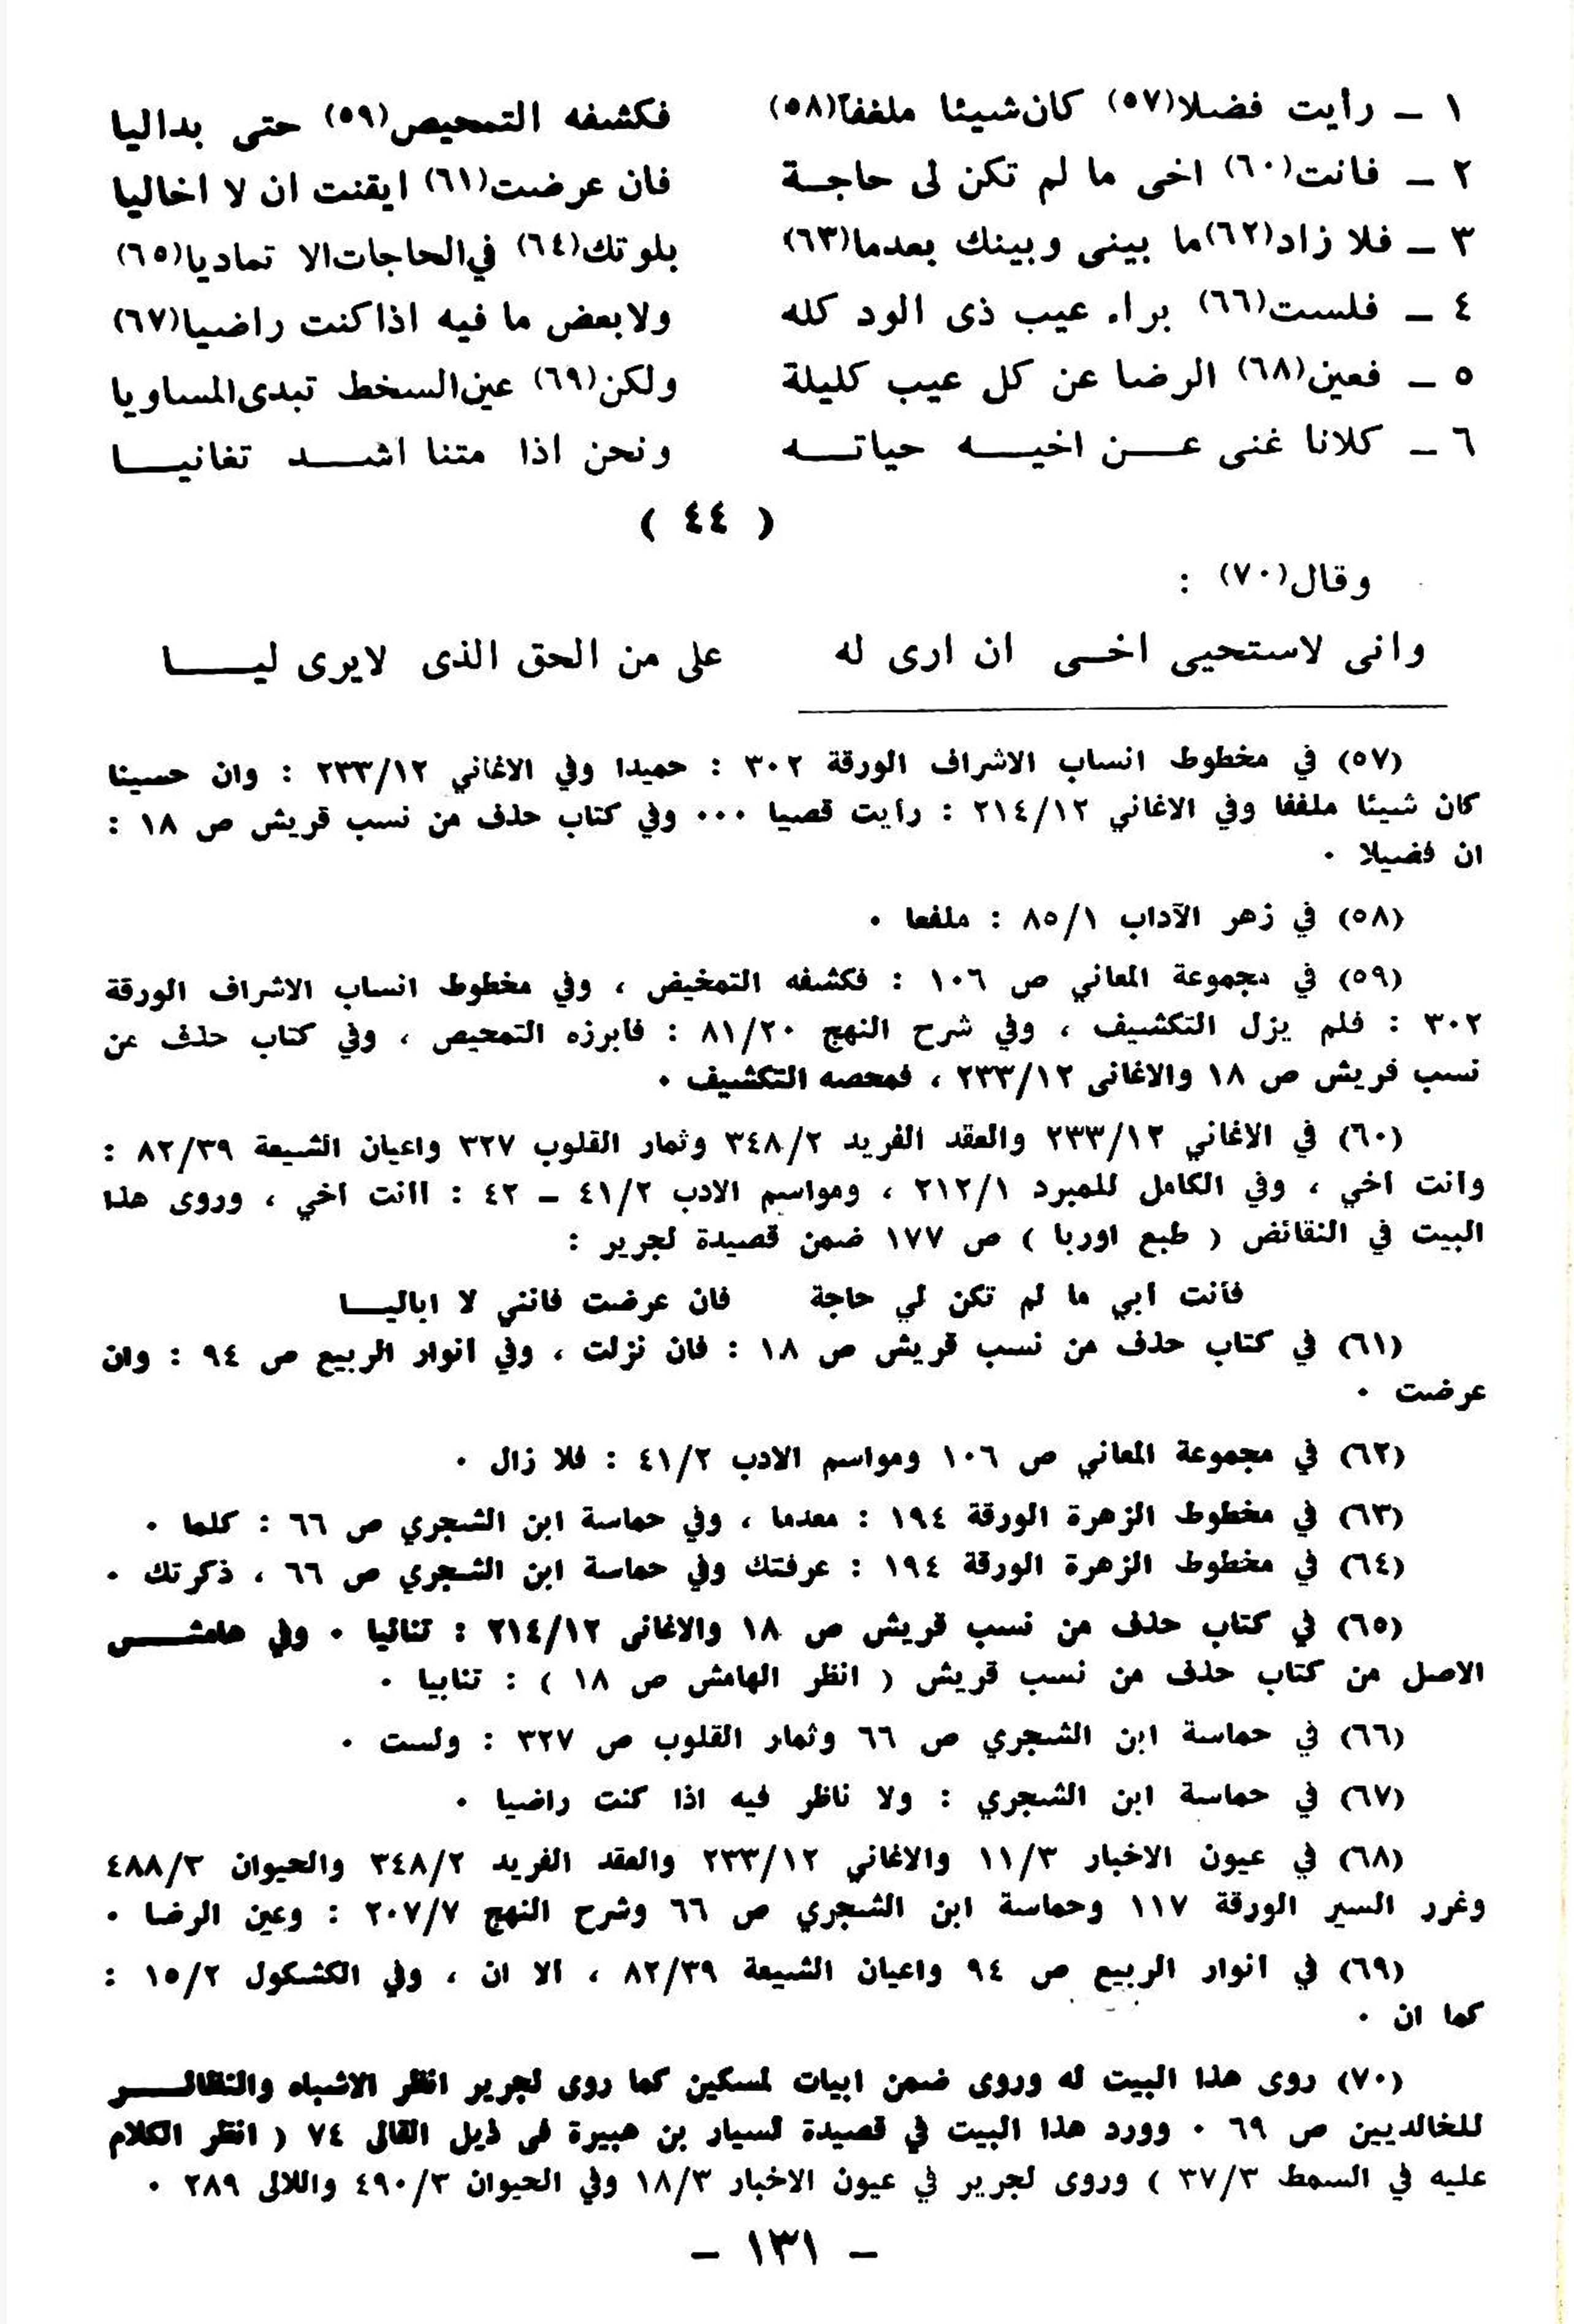 ١ ــ رأيت فضلا(٥٧) كان شيئا ملففا(٥٨) فكشفه التمحيص(٥٩) حتى بداليا
٢ ــ فانت(٦٠) اخى ما لم تكن لى حاجـة فان عرضت(٦١) ايقنت ان لا اخاليا
٣ ــ فلا زاد(٦٢) ما بينى وبينك بعدما(٦٣) بلوتك(٦٤) في الحاجات الا تماديا(٦٥)
٤ ــ فلست(٦٦) براء عيب ذى الود كله ولا بعض ما فيه اذا كنت راضيا(٦٧)
٥ ــ فعين(٦٨) الرضا عن كل عيب كليلة ولكن(٦٩) عين السخط تبدى المساويا
٦ ــ كلانا غنى عــن اخيــه حياتــه ونحن اذا متنا اشــد تغانيــا
( ٤٤ )
وقال(٧٠) :
وانى لاستحيى اخـى ان ارى له على من الحق الذى لايرى ليــا
(٥٧) في مخطوط انساب الاشراف الورقة ٣٠٢ : حميدا وفي الاغاني ٢٣٣/١٢ : وان حسينا
كان شيئا ملففا وفي الاغاني ٢١٤/١٢ : رأيت قصيا ٠٠٠ وفي كتاب حذف من نسب قريش ص ١٨ :
ان فضيلا ٠
(٥٨) في زهر الآداب ٨٥/١ : ملفعا ٠
(٥٩) في مجموعة المعاني ص ١٠٦ : فكشفه التمخيض ، وفي مخطوط انساب الاشراف الورقة
٣٠٢ : فلم يزل التكشيف ، وفي شرح النهج ٨١/٢٠ : فابرزه التمحيص ، وفي كتاب حذف عن
نسب قريش ص ١٨ والاغانى ٢٣٣/١٢ ، فمحصه التكشيف ٠
(٦٠) في الاغاني ٢٣٣/١٢ والعقد الفريد ٣٤٨/٢ وثمار القلوب ٣٢٧ واعيان الشيعة ٨٢/٣٩ :
وانت اخي ، وفي الكامل للمبرد ٢١٢/١ ، ومواسم الادب ٤١/٢ ــ ٤٢ : اانت اخي ، وروى هذا
البيت في النقائض ( طبع اوربا ) ص ١٧٧ ضمن قصيدة لجرير :
فأنت أبي ما لم تكن لي حاجة فان عرضت فانني لا اباليــا
(٦١) في كتاب حذف من نسب قريش ص ١٨ : فان نزلت ، وفي انوار الربيع ص ٩٤ : وان
عرضت ٠
(٦٢) في مجموعة المعاني ص ١٠٦ ومواسم الادب ٤١/٢ : فلا زال ٠
(٦٣) في مخطوط الزهرة الورقة ١٩٤ : معدما ، وفي حماسة ابن الشجري ص ٦٦ : كلما ٠
(٦٤) في مخطوط الزهرة الورقة ١٩٤ : عرفتك وفي حماسة ابن الشجري ص ٦٦ ، ذكرتك ٠
(٦٥) في كتاب حذف من نسب قريش ص ١٨ والاغانى ٢١٤/١٢ : تنائيا ٠ وفي هامشــس
الاصل من كتاب حذف من نسب قريش ( انظر الهامش ص ١٨ ) : تنابيا ٠
(٦٦) في حماسة ابن الشجري ص ٦٦ وثمار القلوب ص ٣٢٧ : ولست ٠
(٦٧) في حماسة ابن الشجري : ولا ناظر فيه اذا كنت راضيا ٠
(٦٨) في عيون الاخبار ١١/٣ والاغاني ٢٣٣/١٢ والعقد الفريد ٣٤٨/٢ والحيوان ٤٨٨/٣
وغرر السير الورقة ١١٧ وحماسة ابن الشجري ص ٦٦ وشرح النهج ٢٠٧/٧ : وعين الرضا ٠
(٦٩) في انوار الربيع ص ٩٤ واعيان الشيعة ٨٢/٣٩ ، الا ان ، وفي الكشكول ١٥/٢ :
كما ان ٠
(٧٠) روى هذا البيت له وروى ضمن ابيات لمسكين كما روى لجرير انظر الاشباه والنظائــر
للخالديين ص ٦٩ ٠ وورد هذا البيت في قصيدة لسيار بن هبيرة فى ذيل القالى ٧٤ ( انظر الكلام
عليه في السمط ٣٧/٣ ) وروى لجرير في عيون الاخبار ١٨/٣ وفي الحيوان ٤٩٠/٣ واللالى ٢٨٩ ٠
ــ ١٣١ ــ